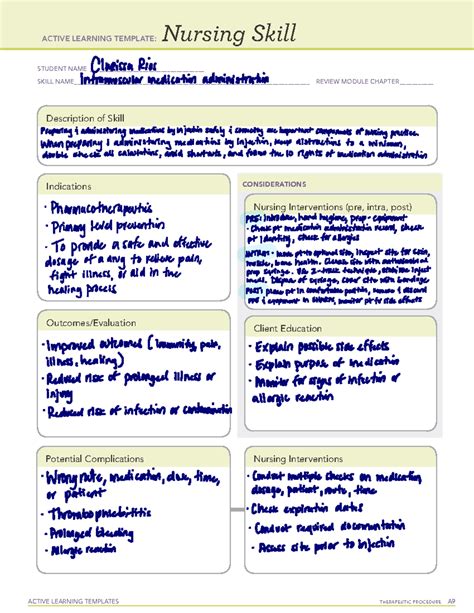 ACTIVE LEARNING TEMPLATE: Nursing Skill
STUDENT NAME Clarissa Rios
SKILL NAME Intramuscular medication administration REVIEW MODULE CHAPTER
Description of Skill
Preparing & administering medications by injection safely & correctly are important components of nursing practice.
When preparing & administering medications by injection, keep distractions to a minimum,
double check all calculations, avoid shortcuts, and follow the 10 rights of medication administration
Indications
· Pharmacotherapeutics
· Primary level prevention
· To provide a safe and effective
dosage of a drug to relieve pain,
fight illness, or aid in the
healing process
CONSIDERATIONS
Nursing Interventions (pre, intra, post)
PRE: Introduce, hand hygiene, prep equipment
· Check pt medication administration record, check
pt identity, check for allergies
INTRA: pt to optimal site, inspect site for
Cleanse site with
syringe. Use Z-track technique, inject
Dispose of syringe, cover site with bandage
POST: place pt in comfortable position, & discard
equipment monitor pt for side effects
Outcomes/Evaluation
· Improved outcomes (immunity, pain,
illness, healing)
· Reduced risk of prolonged illness or
injury
· Reduced risk of infection or contamination
Client Education
· Explain possible side effects
· Explain purpose of medication
· Monitor for signs of infection or
allergic reaction
Potential Complications
· Wrong route, medication, dose, time,
or patient
· Thrombophlebitis
· Prolonged bleeding
· Allergic reaction
Nursing Interventions
· Conduct multiple checks on medication
dosage, patient, route, time
· Check expiration dates
· Conduct required documentation
· Assess site prior to injection
ACTIVE LEARNING TEMPLATES THERAPEUTIC PROCEDURE A9